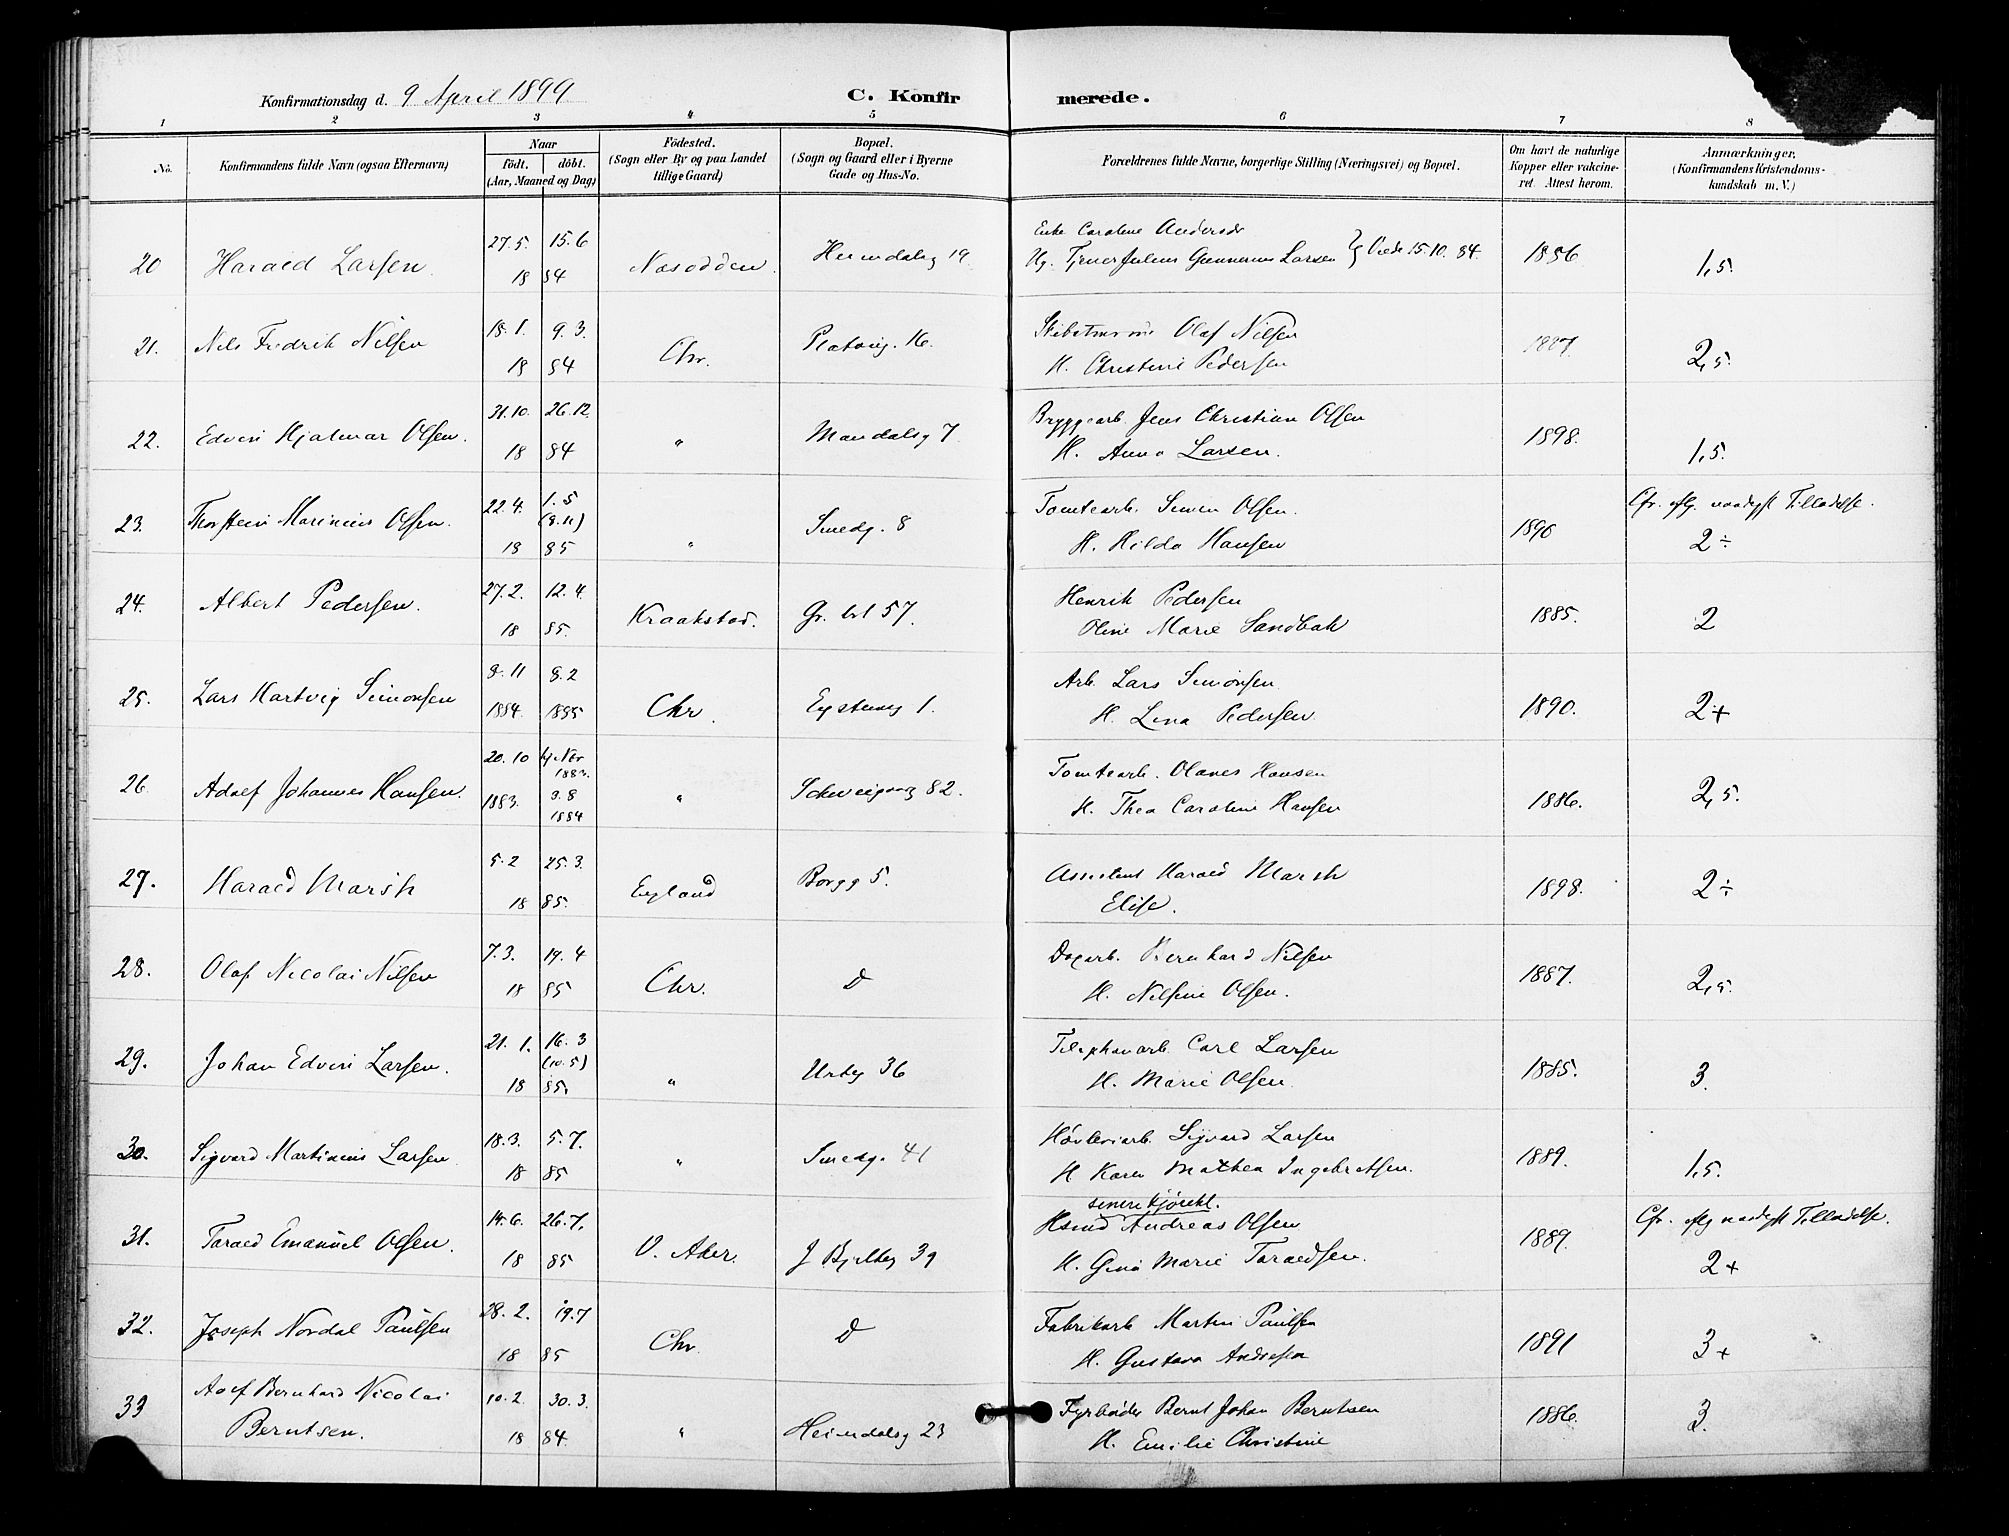 Konfirmationsdag d. 9 April 1899
C. Konfirmerede.
1 2 3 4 5 6 7 8
No.
Konfirmandens fulde Navn (ogsaa Efternavn)
Naar
födt. döbt.
(Aar, Maaned og Dag)
Födested.
(Sogn eller By og paa Landet
tillige Gaard)
Bopæl.
(Sogn og Gaard eller i Byerne
Gade og Hus-No.
Forældrenes fulde Navne, borgerlige Stilling (Næringsvei) og Bopæl.
Om havt de naturlige
Kopper eller vakcine-
ret. Attest herom.
Anmærkninger.
(Konfirmandens Kristendoms-
kundskab m. V.)
20 Harald Larsen 27.5. 15.6 1884 Nesodden Heimdalsg 19
Enke Caroline Andersdr
Ug. Julius Gunnerius Larsen Viede 15.10.84. 1886 1,5.
21. Nils Fredrik Nilsen 18.1. 9.3. 1884 Chr. Platoug. 16.
Olaf Nilsen
H. Christine Pedersen 1887. 2,5.
22. Edvin Hjalmar Olsen. 31.10. 26.12. 1884 " Mandalsg 7
Bryggearb. Jens Christian Olsen
H. Anna Larsen. 1898. 1,5.
23. Thorstein Marinius Olsen. 22.4. 1.5 (8.11) 1885 " Smedg. 8
Tomtearb. Simen Olsen.
H. Hilda Hansen 1890 Cfr. naadigst Tilladelse.
2÷
24. Albert Pedersen. 27.2. 12.4. 1885. Kraakstad. Gr. 57.
Henrik Pedersen
Oline Marie Sandbak 1885. 2
25. Lars Hartvig Simonsen 9.11 8.2 1884. 1885 Chr. Eystensg 1.
Arb. Lars Simonsen
H. Lina Pedersen. 1890. 2+
26. Adolf Johannes Hansen. 20.10 1883. Nov 1883. 3.8 1884 " Schweigaardsg 82.
Tomtearb. Olaves Hansen
H. Thea Caroline Hansen 1886. 2,5.
27. Harald Marsh 5.2 25.3. 1885. England Borgg 5.
Assistent Harald Marsh
Elise. 1898. 2÷
28. Olaf Nicolai Nilsen 7.3. 19.4 1885 Chr. D
Dagarb. Bernhard Nilsen
H. Nilsine Olsen. 1887. 2,5.
29. Johan Edvin Larsen. 21.1. 16.3 (10.5) 1885. " Urteg 36
Telephonarb. Carl Larsen
H. Marie Olsen. 1885. 3.
30. Sigvard Martinius Larsen 18.3. 5.7. 1885 " Smedg. 41
Høvleriarb. Sigvard Larsen
H Karen Mathea Ingebretsen. 1889. 1,5.
31. Tarald Emanuel Olsen. 14.6. 26.7. 1885 V. Aker. J Bjelkes 39
senere Kjørekl.
Hsmd Andreas Olsen
H. Gina Marie Taraldsen. 1889. Cfr. naadigst Tilladelse.
2+
32. Joseph Nordal Paulsen 28.2. 19.7 1885 Chr. D
Fabrikarb Martin Paulsen
H. Gustava Andresen 1891 3+
33 Adolf Bernhard Nicolai
Berntsen. 10.2. 30.3. 1884. " Heimdalsg 23
Fyrbøder Bernt Johan Berntsen
H. Emilie Christine 1886. 3.